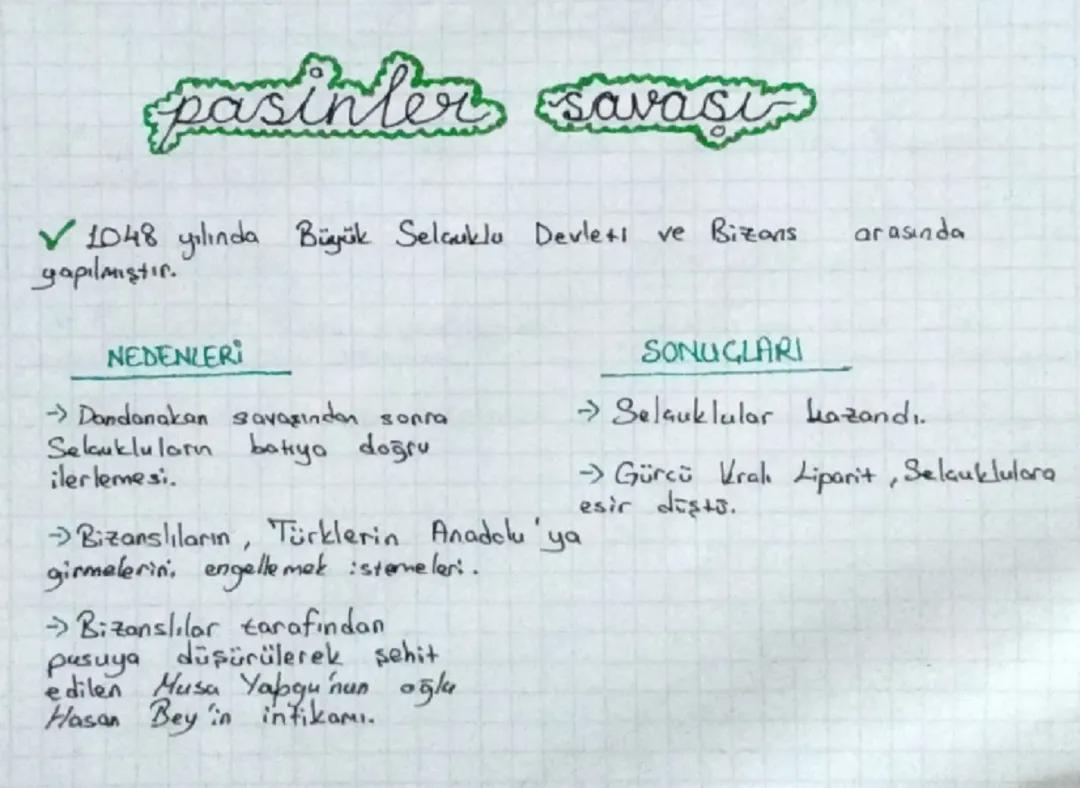 pasinler savaşı
✓ 1048 yılında Büyük Selçuklu Devleti ve Bizans arasında
yapılmıştır.
NEDENLERİ
→ Dandanakan savaşından sonra
Selçukluların batıya doğru
ilerlemesi.
→ Bizanslıların, Türklerin Anadolu'ya
girmelerini engellemek istemeleri.
→ Bizanslılar tarafından
pusuya düşürülerek şehit
edilen Musa Yabgu'nun oğlu
Hasan Bey'in intikamı.
SONUÇLARI
→ Selçuklular kazandı.
→ Gürcü Kralı Liparit, Selçuklulara
esir düştü.